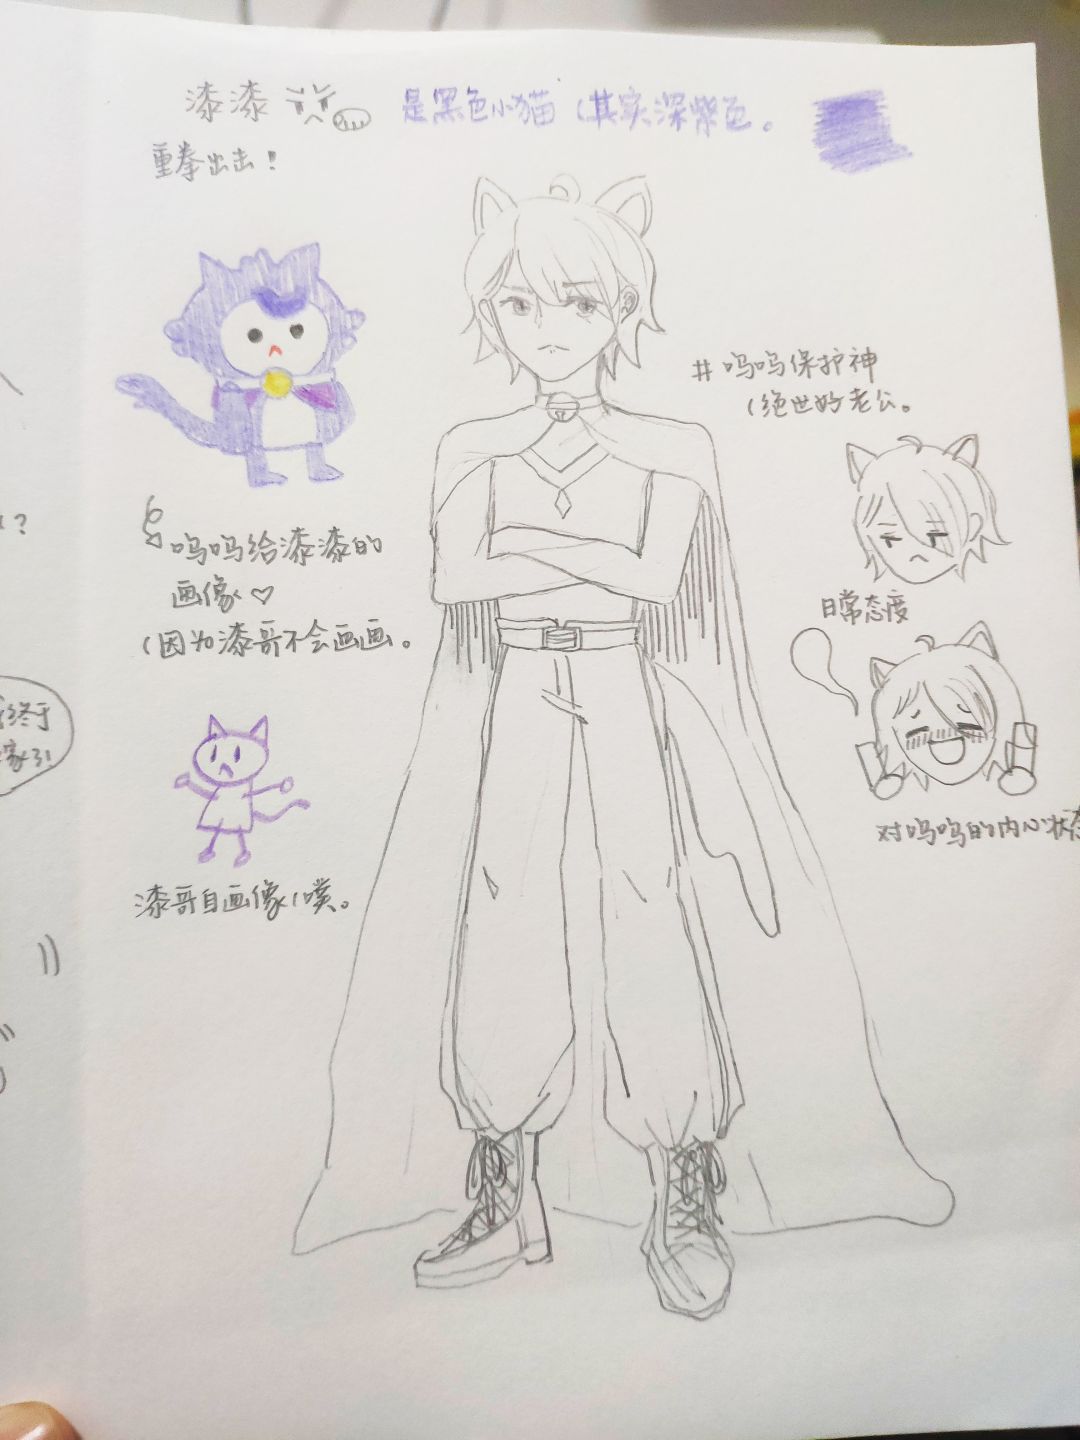 漆漆
是黑色小猫（其实深紫色。
重拳出击！
#呜呜保护神
（绝世好老公。
呜呜给漆漆的
画像♡
（因为漆哥不会画画。
日常态度
对呜呜的内心状态
漆哥自画像（噗。
?
终于
家了!